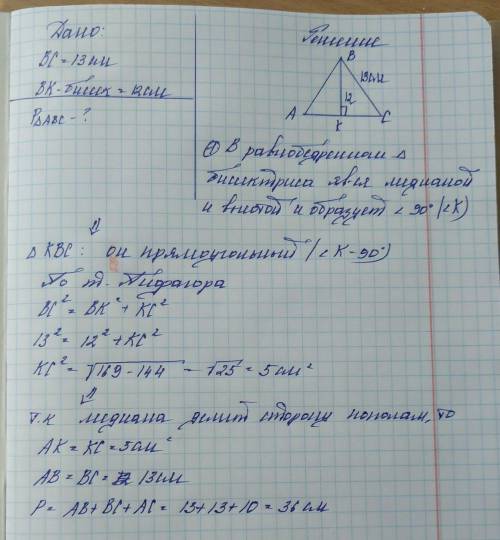 Дано:
BC = 13 см
BK - бисек = 12 см
P△ABC - ?
Решение
B
13 см
12
A
K
C
① В равнобедренном △
бисектриса явл медианой
и высотой и образует ∠ 90° (∠K)
⇓
△ KBC: он прямоугольный (∠K - 90°)
По т. Пифагора
BC² = BK² + KC²
13² = 12² + KC²
KC² = √169 - 144 - √25 = 5 см²
⇓
т.к медиана делит сторону пополам, то
AK = KC = 5 см
AB = BC = 13 см
P = AB + BC + AC = 13 + 13 + 10 = 36 см